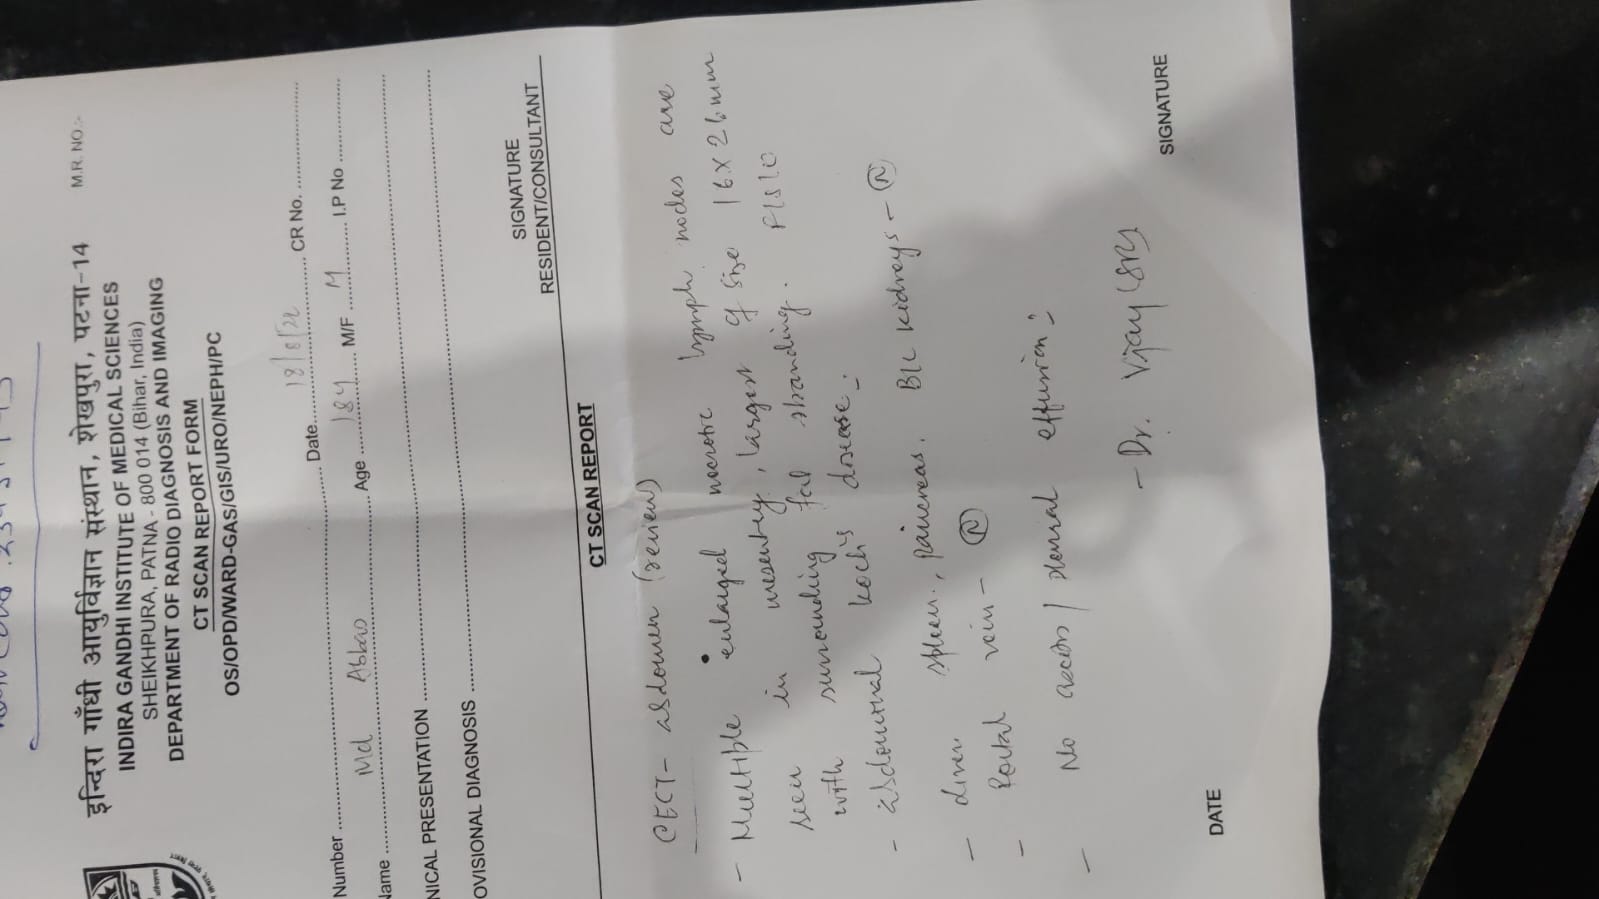 M.R. NO.:-
इन्दिरा गाँधी आयुर्विज्ञान संस्थान, शेखपुरा, पटना-14
INDIRA GANDHI INSTITUTE OF MEDICAL SCIENCES
SHEIKHPURA, PATNA - 800 014 (Bihar, India)
DEPARTMENT OF RADIO DIAGNOSIS AND IMAGING
CT SCAN REPORT FORM
OS/OPD/WARD-GAS/GIS/URO/NEPH/PC
Number Date 18/8/22 CR No.
Name Md Abbas Age 18y M/F M I.P No
NICAL PRESENTATION
OVISIONAL DIAGNOSIS
SIGNATURE
RESIDENT/CONSULTANT
CT SCAN REPORT
CECT- abdomen (review)
- Multiple enlarged necrotic lymph nodes are
seen in mesentry, largest of size 16 X 26 mm
with surrounding fat stranding. P/S/O
- abdominal koch's disease -
- liver, spleen, pancreas. B/L kidneys - (N)
- Portal vein - (N)
- No ascites / pleural effusion -
- Dr. Vijay (SR)
DATE
SIGNATURE